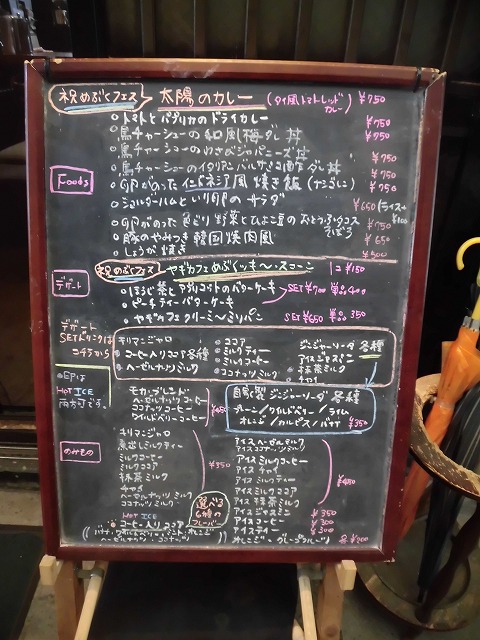 祝めぶくフェス 太陽のカレー (タイ風トマトレッドカレー) ¥750
トマトとパプリカのドライカレー ¥750
鳥チャーシューの和風梅ダレ丼 ¥750
鳥チャーシューのわさびジャパニーズ丼 ¥750
鳥チャーシューのイタリアンバルサミコ ダレ丼 ¥750
Foods
がのった インドネシア風 焼き飯
ショルダーハムといり卵のサラダ ¥650 (ライス+¥100
がのった 野菜とひよこ豆の ¥750
豚のやみつき 韓国焼肉風 ¥650
しょうが焼き ¥500
祝めぶくフェス ヤギカフェめぶくッキ〜・スコーン 1コ ¥150
デザート
ほうじ茶とアプリコットのバターケーキ
ピーチティーバターケーキ SET ¥700 単品 400
ヤギカフェクリーミ〜ミリパン SET ¥650 単品 350
デザート SETドリンクはコチラから
キリマンジャロ
コーヒー入りココア 各種
ヘーゼルナッツ ミルク
ココア
ミルクティー
ミルクコーヒー
ココナッツ ミルク
ジンジャーソーダ 各種
アイスジャスミン
抹茶ミルク
チャイ
のEPは HOT ICE 両方可です。
モカ・ブレンド
ヘーゼルナッツ コーヒー
ココナッツ コーヒー
ワイルドベリーコーヒー
¥450
自家製 ジンジャーソーダ 各種
プレーン/ワイルドベリー/ライム
オレンジ/カルピス/バナナ ¥350
のみもの
キリマンジャロ
煮出しミルクティー
ミルクコーヒー
ミルクココア
抹茶ミルク
チャイ
ヘーゼルナッツ ミルク
ココナッツ ミルク
¥350
HOT ICE
コーヒー入りココア
選べる 6種のフレーバー
アイスヘーゼルミルク
アイスココナッツミルク
アイスミルクコーヒー
アイス チャイ
アイス ミルクティー
アイスミルクココア
アイス 抹茶ミルク
¥400
アイスジャスミン ¥350
アイスコーヒー ¥300
アイスティー ¥300
オレンジ・グレープフルーツ 各¥200
((バナナ・ワイルドベリー・ミント・オレンジ
ヘーゼルナッツ・ココナッツ